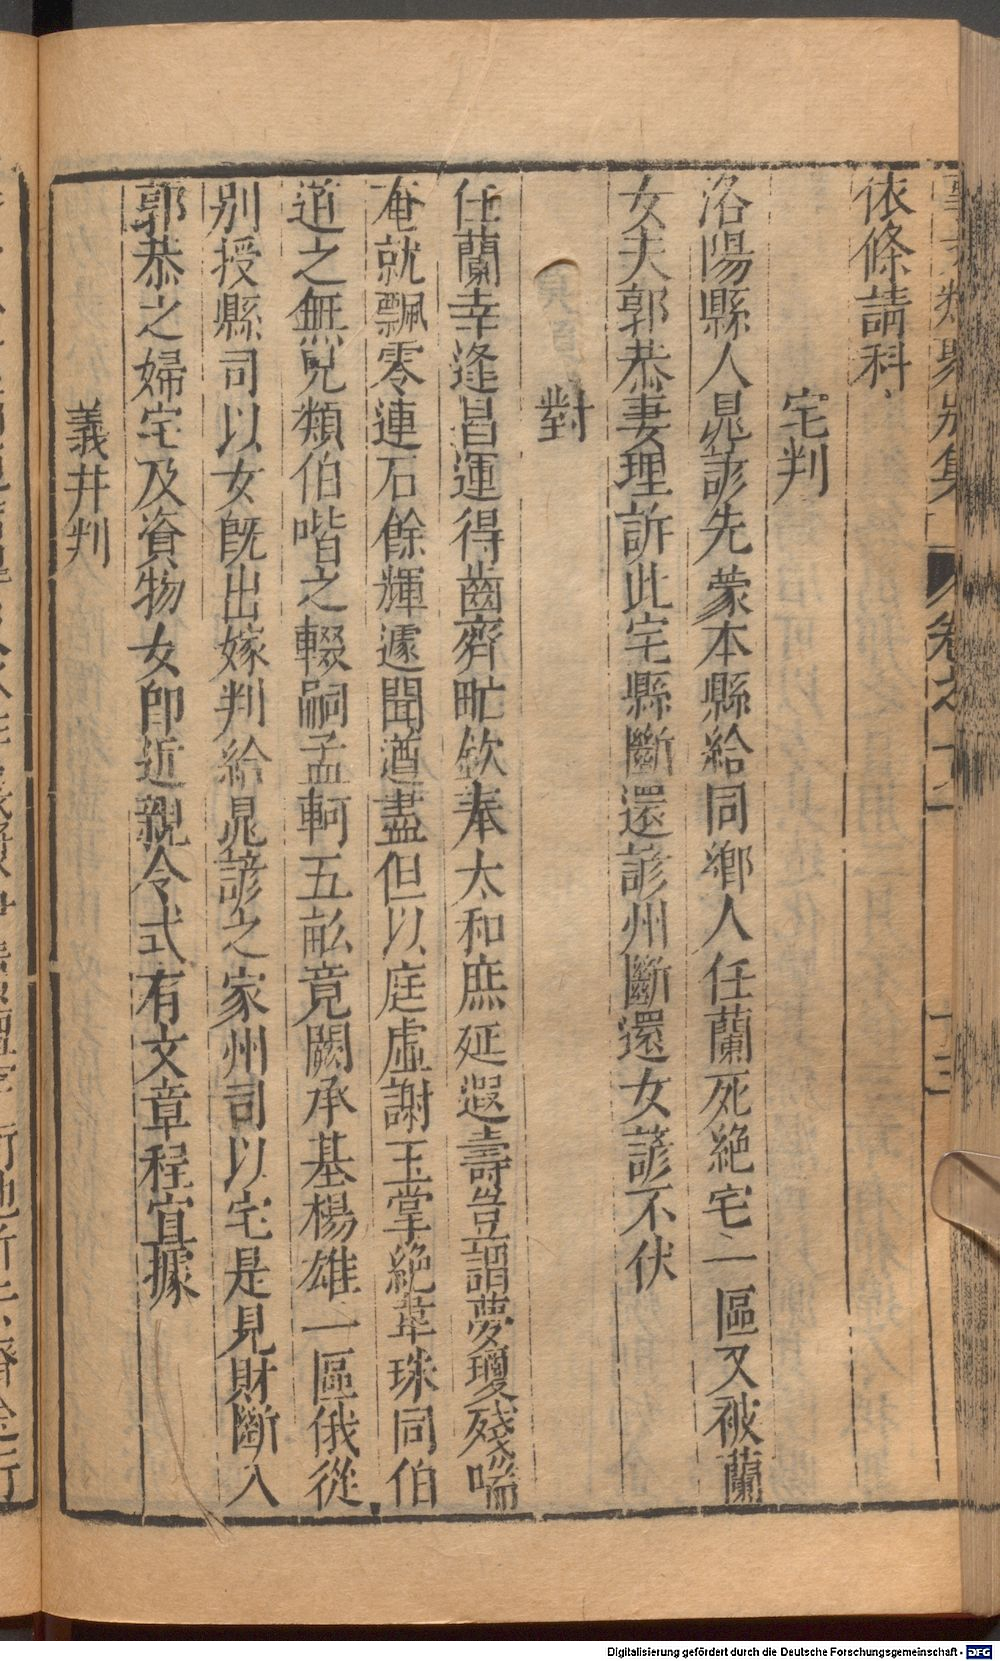 依條請科
宅判
洛陽縣人晁諺先蒙本縣給同鄉人任蘭死絶宅一區又被蘭
女夫郭恭妻理訴此宅縣斷還諺州斷還女諺不伏
對
任蘭幸逢昌運得齒齊甿欽奉太和庶延遐壽豈謂夢瓊殘喘
奄就飄零連石餘輝遽聞遒盡但以庭虛謝玉掌絶韋珠同伯
道之無兒類伯喈之輟嗣孟軻五畆竟闕承基楊雄一區俄從
别授縣司以女旣出嫁判給晁諺之家州司以宅是見財斷入
郭恭之婦宅及資物女卽近親令式有文章程宜據
義井判
Digitalisierung gefördert durch die Deutsche Forschungsgemeinschaft - DFG